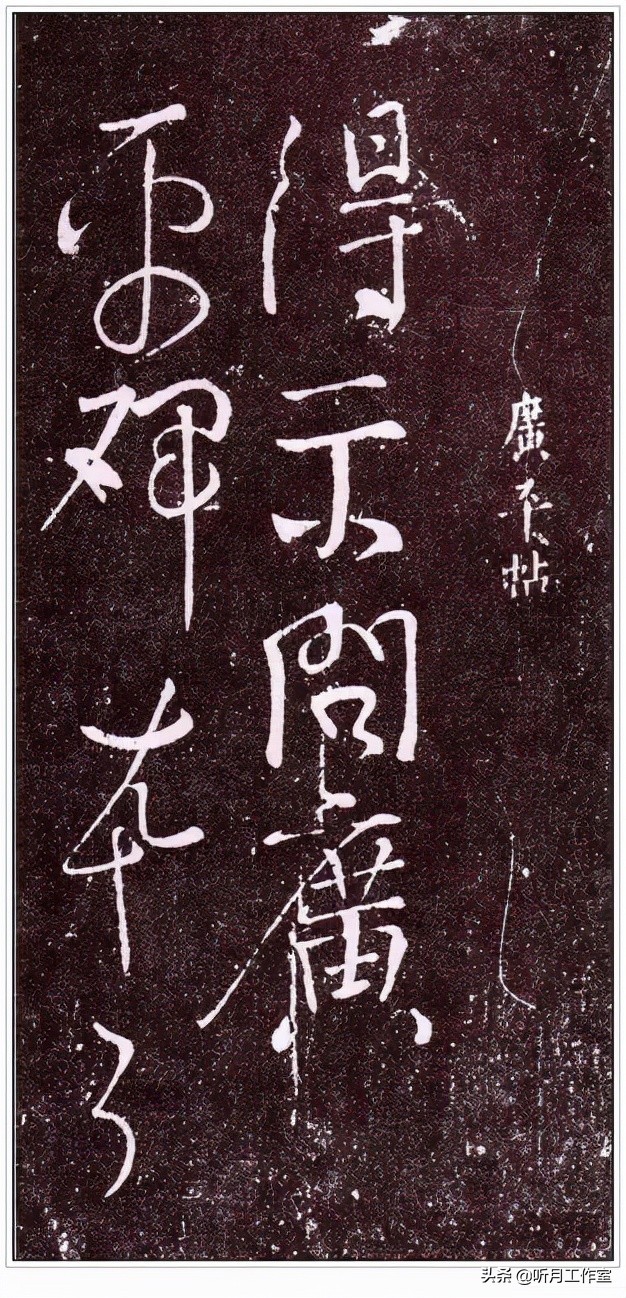 廣平帖
得示問廣
平碑本了
头条 @听月工作室